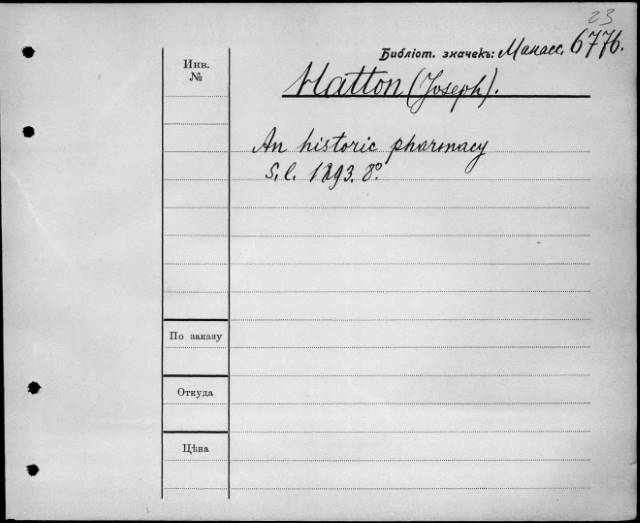 23
Библіот. значекъ: Манасс. 6776.
Инв.
№
Hatton (Joseph).
An historic pharmacy
S. l. 1893. 8º.
По заказу
Откуда
Цѣна